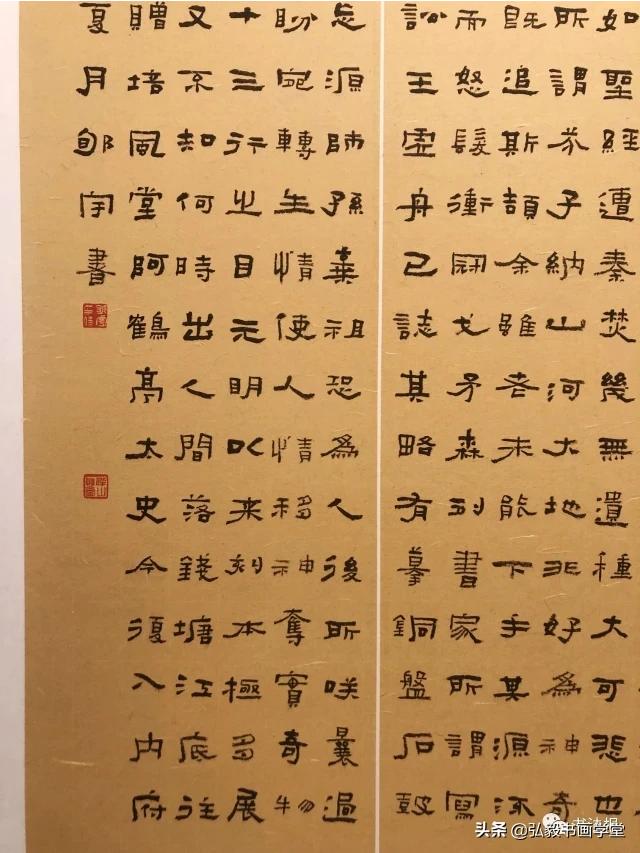 如聖經遭秦焚幾無遺種大可悲也
所謂芥子納山河大地非好為神奇
既追斯頡余雖老未能下手其源流
而怒髮衝冠戈矛森列書家所謂寫
訟王虛舟已誌其略有摹銅盤石鼓
忘源師孫棄祖恐為人後所咲曩過
盼宛轉生情使人情移神奪實奇物
十三行之目元明以来刻本極多展
又不知何時出人間落錢塘江底往
贈培風堂阿鶴亭太史今復入内府
夏月郇宇書
书法报
头条 @弘毅书画学堂